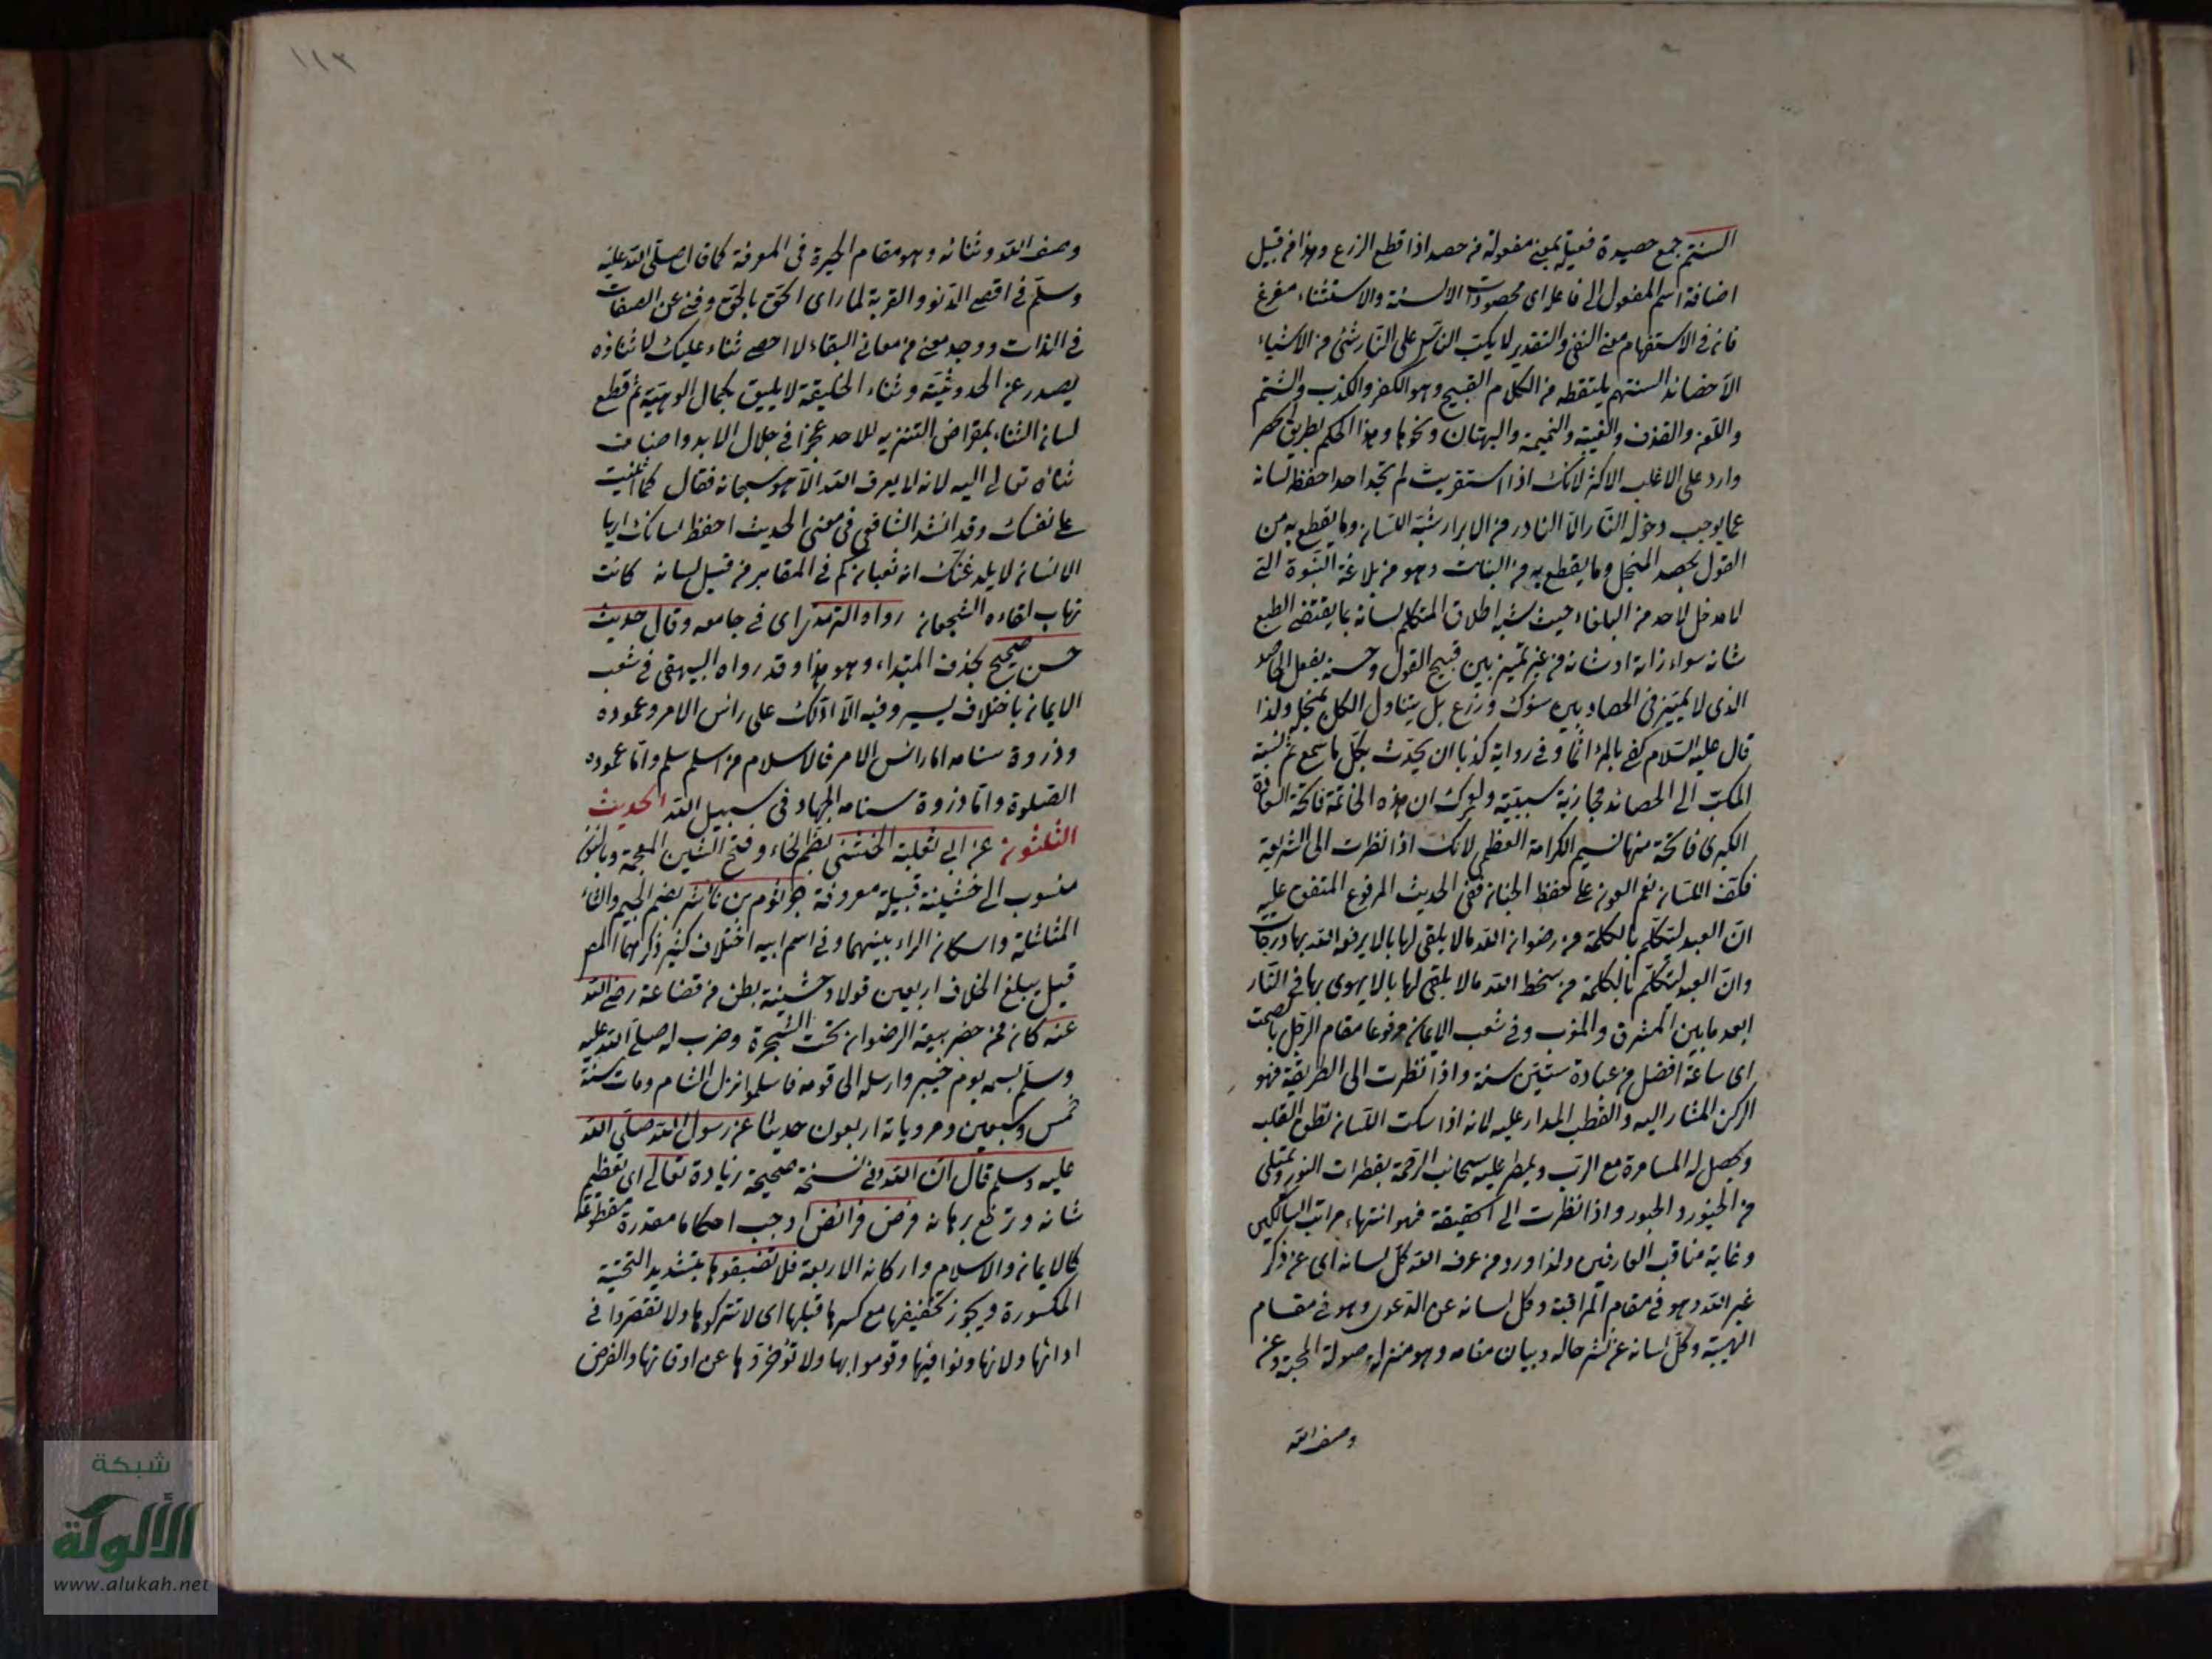 السنتهم جمع حصيدة فعيلة بمعنى مفعولة من حصد اذا قطع الزرع وهذا من قبيل
اضافة اسم المفعول الى فاعله اى محصودات الالسنة والاستثناء مفرغ
فانه في الاستفهام معنى النفي والتقدير لا يكب الناس على النار شئ من الاشياء
الا حصائد السنتهم يلتقطه من الكلام القبيح وهو الكفر والكذب والشتم
واللعن والقذف والغيبة والنميمة والبهتان ونحوها وهذا الحكم بطريق الحصر
وارد على الاغلب الاكثر لانك اذا استقريت لم تجد احدا حفظ لسانه
عما يوجب دخول النار الا النادر من الابرار شبه اللسان وما يقطع به من
القول بحصد المنجل وما يقطع به من النبات وهو من بلاغة النبوة التى
لا مدخل لاحد من البلغاء حيث شبه اطلاق المتكلم لسانه بما يقتضى الطبع
شانه سواء زانه او شانه من غير تميز بين قبيح القول وحسنه بفعل الحاصد
الذى لا يميز في الحصاد بين شوك وزرع بل يتناول الكل بمنجله ولذا
قال عليه السلام كفى بالمرء اثما وفي رواية كذبا ان يحدث بكل ما سمع ثم نسبة
المكب الى الحصائد مجازية سببية ولعمرك ان هذه الخاتمة فاتحة السعادة
الكبرى فاتحة منها نسيم الكرامة العظمى لانك اذا نظرت الى الشريعة
فكف اللسان نعم العون على حفظ الجنان ففى الحديث المرفوع المتفق عليه
ان العبد ليتكلم بالكلمة من رضوان الله ما لا يلقى لها بالا يرفعه الله بها درجات
وان العبد ليتكلم بالكلمة من سخط الله ما لا يلقى لها بالا يهوى بها في النار
ابعد ما بين المشرق والمغرب وفي شعب الايمان مرفوعا مقام الرجل بالصمت
اى ساعة افضل من عبادة ستين سنة واذا نظرت الى الطريقة فهو
الركن المشار اليه والقطب المدار عليه لانه اذا سكت اللسان نطق القلب
ويحصل له المسامرة مع الرب ويمطر عليه سحائب الرحمة بقطرات النور ويمتلى
من الحبور واذا نظرت الى الحقيقة فهو انتهاء مراتب السالكين
وغاية مناقب العارفين ولذا ورد من عرف الله كل لسانه اى عن ذكر
غير الله وهو في مقام المراقبة وكل لسانه عن الدعوى وهو في مقام
الهيبة وكل لسانه عن نشر حاله وبيان مقامه وهو منزلة صولة المحبة وعن
وصف الله
١١٣
وصف الله وثنائه وهو مقام الحيرة في المعرفة كما قال صلى الله عليه
وسلم في اقصى الدنو والقربة لما راى الحق بالحق وفنى عن الصفات
في الذات ووجد معنى من معانى البقاء لا احصى ثناء عليك لا ثناؤه
يصدر عن الحدوثية وثناء الخليقة لا يليق بكمال الوهيته ثم قطع
لسان الثناء بمقراض التنزيه للاحد عجزا في جلال الابد واضاف
ثناه تعالى اليه لانه لا يعرف الله الا هو سبحانه فقال كما اثنيت
على نفسك وقد انشد الشافعى في معنى الحديث احفظ لسانك ايها
الانسان لا يلدغنك انه ثعبان كم في المقابر من قتيل لسانه كانت
تهاب لقاءه الشجعان رواه الترمذى اى في جامعه وقال حديث
حسن صحيح بحذف المبتداء وهو هذا وقد رواه البيهقى في شعب
الايمان باختلاف يسير وفيه الا ادلك على راس الامر وعموده
وذروة سنامه اما راس الامر فالاسلام من اسلم سلم واما عموده
الصلوة واما ذروة سنامه الجهاد في سبيل الله الحديث
الثلثون عن ابى ثعلبة الخشنى بضم الخاء وفتح الشين المعجمة وبالنون
منسوب الى خشينة قبيلة معروفة جرثوم بن ناشر بضم الجيم والثاء
المثلثة واسكان الراء بينهما وفي اسم ابيه اختلاف كثير ذكرهما المص
قيل يبلغ الخلاف اربعين قولا وخشينة بطن من قضاعة رضى الله
عنه كان ممن حضر بيعة الرضوان تحت الشجرة وضرب له صلى الله عليه
وسلم بسهمه يوم خيبر وارسله الى قومه فاسلموا نزل الشام ومات سنة
خمس وسبعين ومروياته اربعون حديثا عن رسول الله صلى الله
عليه وسلم قال ان الله وفى نسخة صحيحة زيادة تعالى اى تعظم
شانه وترفع برهانه فرض فرائض اوجب احكاما مقدرة مقطوعة
كالايمان والاسلام واركانه الاربعة فلا تضيعوها بتشديد التحتية
المكسورة ويجوز تخفيفها مع كسر ما قبلها اى لا تتركوها ولا تقصروا في
ادائها وقوموا بها ولا تؤخروها عن اوقاتها والفرض
شبكة
الألوكة
www.alukah.net